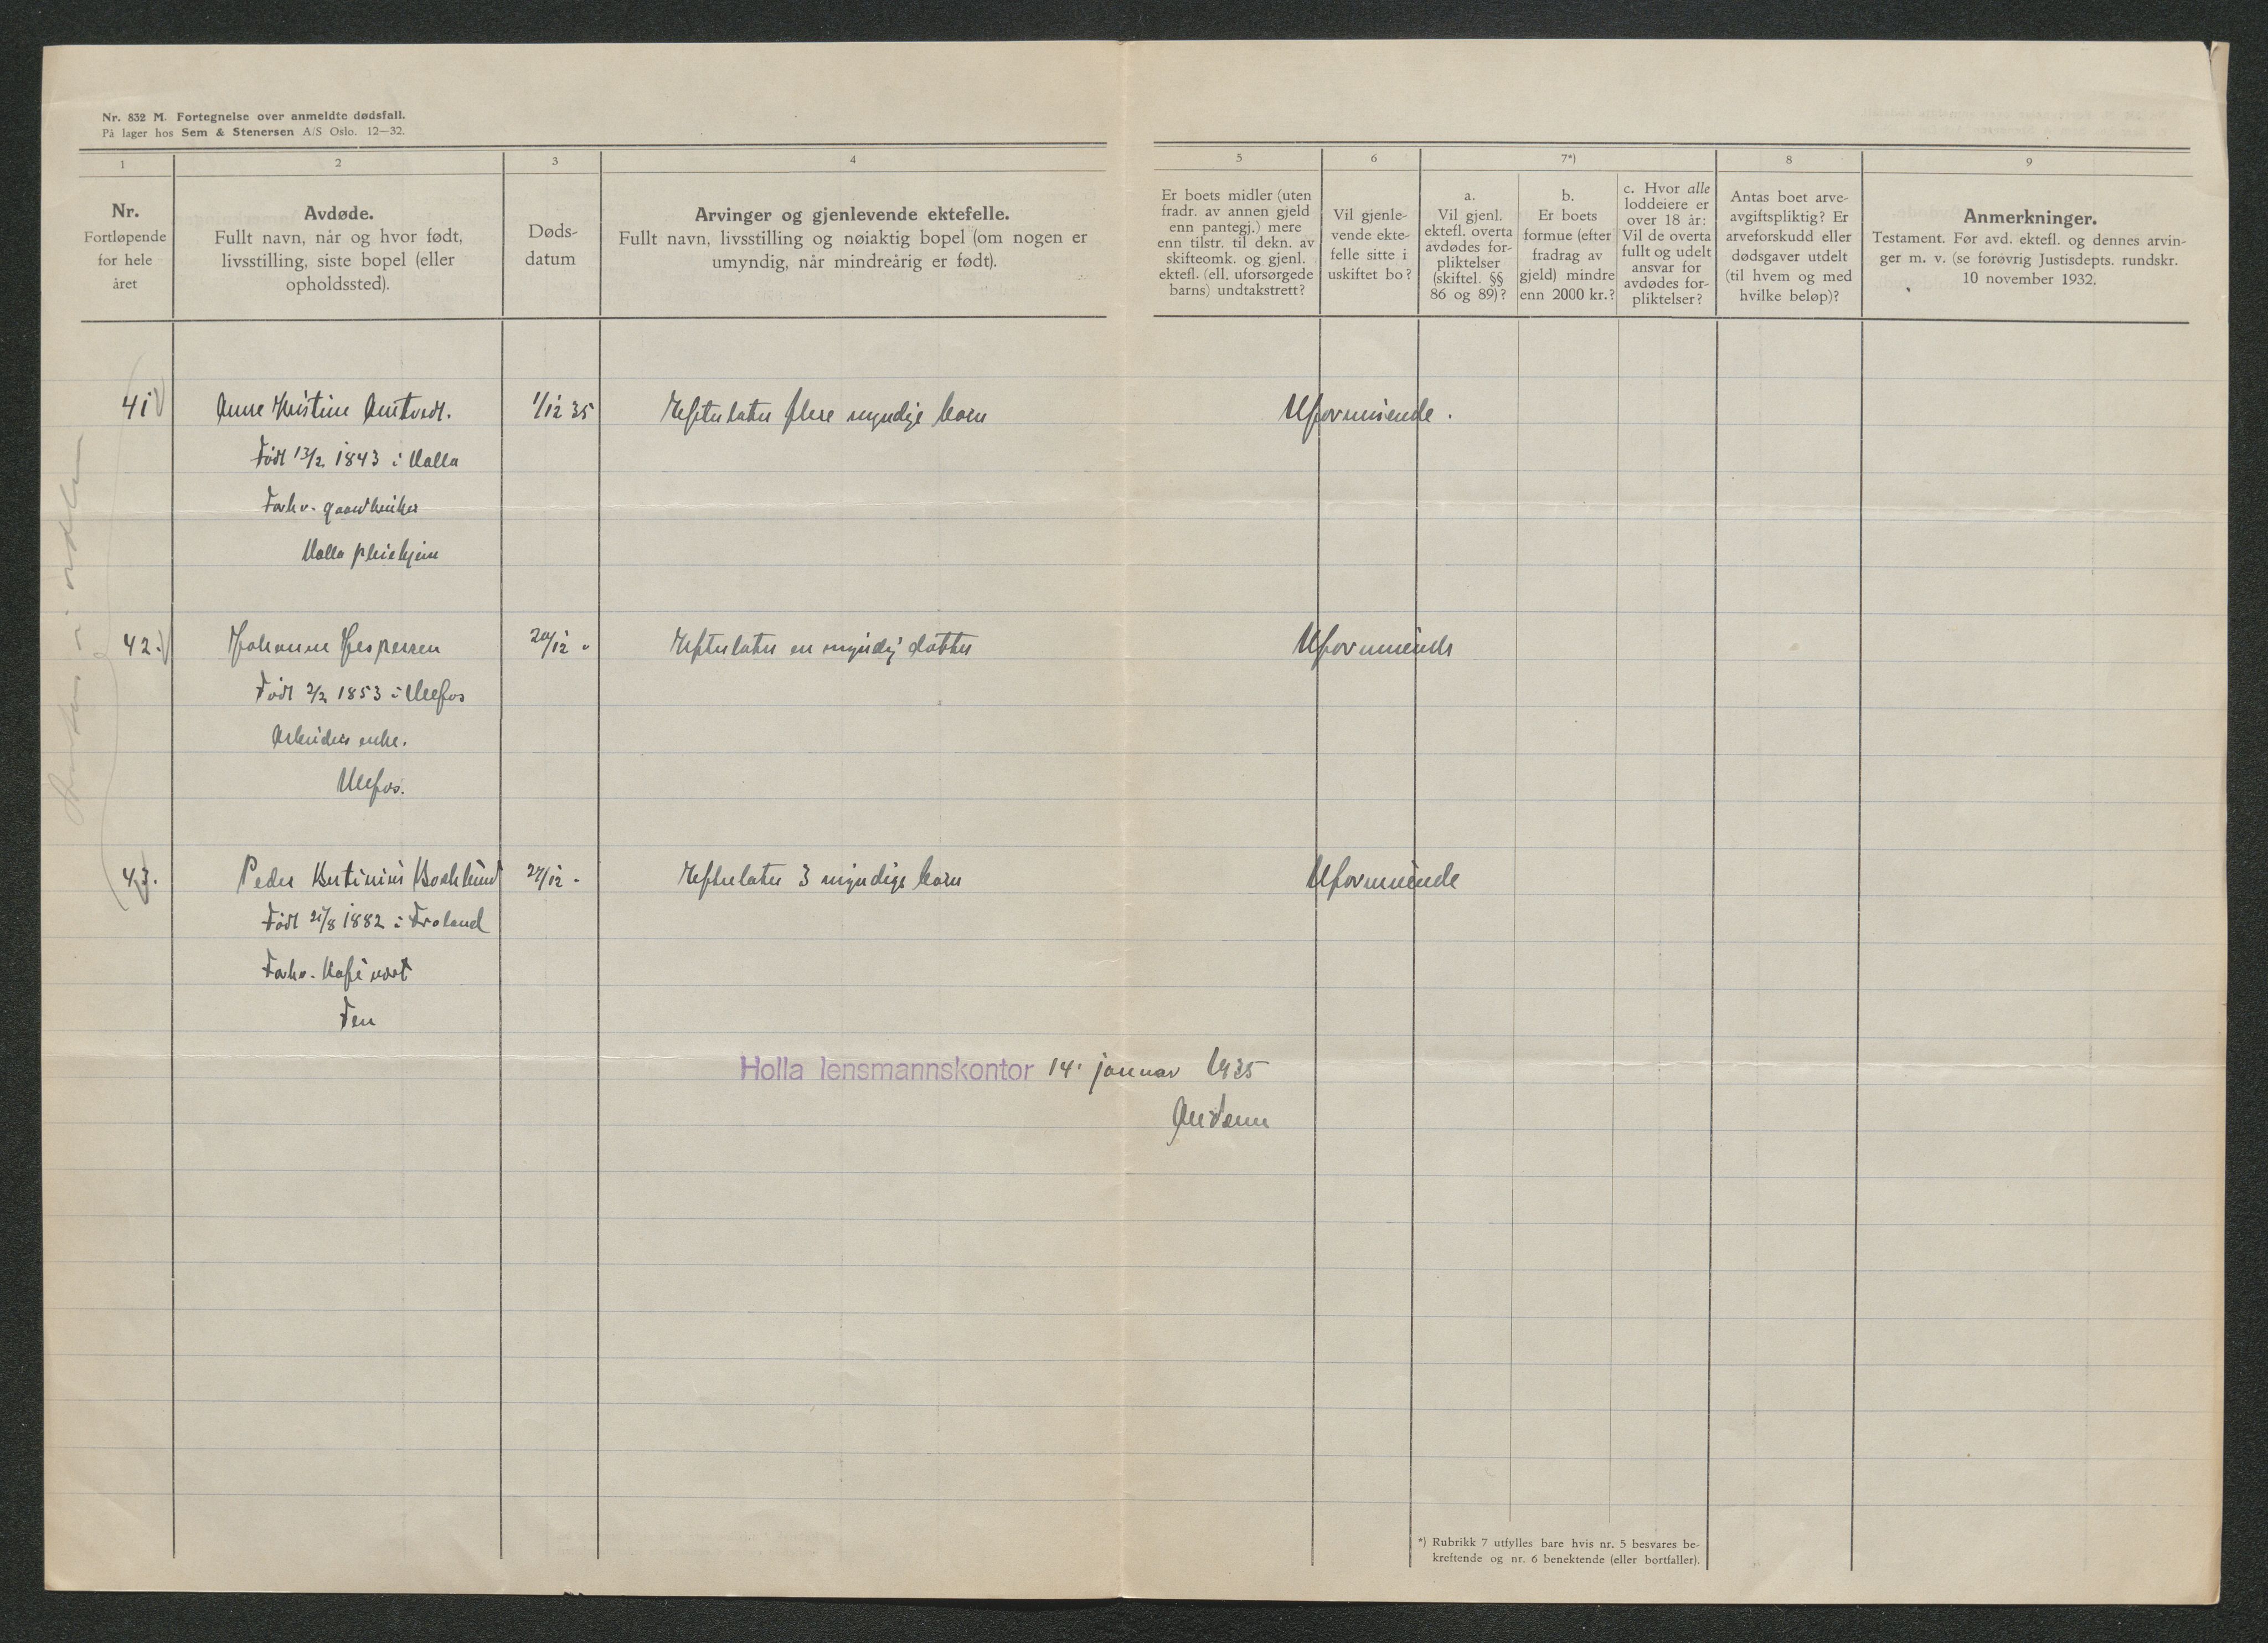 Nr. 832 M. Fortegnelse over anmeldte dødsfall.
På lager hos Sem & Stenersen A/S Oslo. 12—32.
1
2
3
4
5
6
7*)
8
9
Nr.
Fortløpende
for hele
året
Avdøde.
Fullt navn, når og hvor født,
livsstilling, siste bopel (eller
opholdssted).
Døds-
datum
Arvinger og gjenlevende ektefelle.
Fullt navn, livsstilling og nøiaktig bopel (om nogen er
umyndig, når mindreårig er født).
Er boets midler (uten
fradr. av annen gjeld
enn pantegj.) mere
enn tilstr. til dekn. av
skifteomk. og gjenl.
ektefl. (ell. uforsørgede
barns) undtakstrett?
Vil gjenle-
vende ekte-
felle sitte i
uskiftet bo?
a.
Vil gjenl.
ektefl. overta
avdødes for-
pliktelser
(skiftel. §§
86 og 89)?
b.
Er boets
formue (efter
fradrag av
gjeld) mindre
enn 2000 kr.?
c. Hvor alle
loddeiere er
over 18 år:
Vil de overta
fullt og udelt
ansvar for
avdødes for-
pliktelser?
Antas boet arve-
avgiftspliktig? Er
arveforskudd eller
dødsgaver utdelt
(til hvem og med
hvilke beløp)?
Anmerkninger.
Testament. Før avd. ektefl. og dennes arvin-
ger m. v. (se forøvrig Justisdepts. rundskr.
10 november 1932.
41 Anne Kristine 1/12 35 Efterlater flere myndige barn Uformuende.
Født 13/2 1843 i Holla
Forhv. gaardbruker
Holla pleiehjem
42. Johanne Jespersen 20/12 " Efterlater en myndig datter Uformuende
Født 2/2 1853 i Ulefos
Arbeiders enke.
Ulefos.
43. Peder 27/12 - Efterlater 3 myndige barn Uformuende
Født 21/8 1882 i Froland
Forhv. Kafevert
Fen
Holla lensmannskontor 14. januar 1935
*) Rubrikk 7 utfylles bare hvis nr. 5 besvares be-
kreftende og nr. 6 benektende (eller bortfaller).